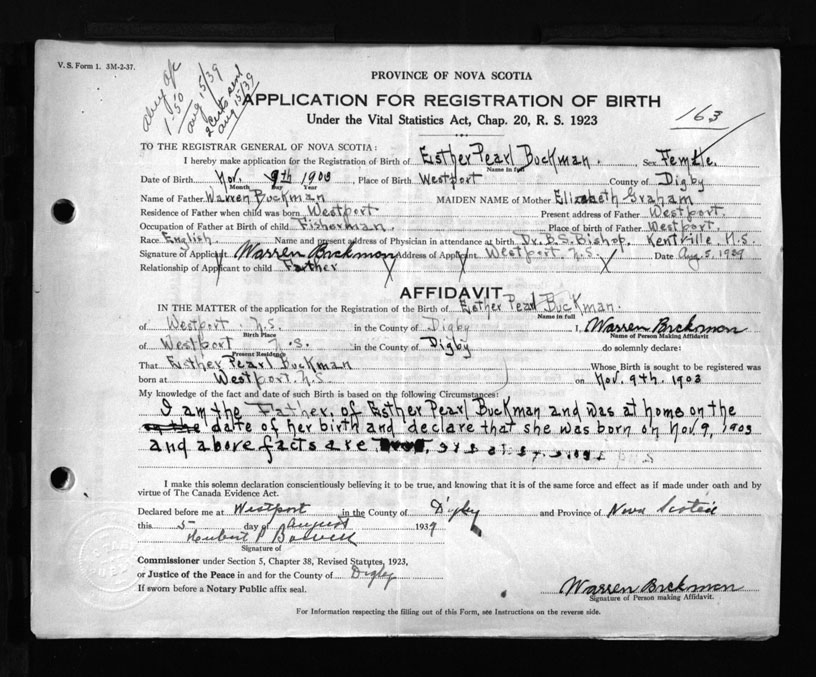 V. S. Form 1. 3M-2-37.
PROVINCE OF NOVA SCOTIA
1.50
Aug 15/39
Aug 15/39
APPLICATION FOR REGISTRATION OF BIRTH
163
Under the Vital Statistics Act, Chap. 20, R. S. 1923
TO THE REGISTRAR GENERAL OF NOVA SCOTIA:
I hereby make application for the Registration of Birth of Esther Pearl Buckman. Sex Female.
Name in full
Date of Birth Nov. 9th 1903, Place of Birth Westport County of Digby
Month Day Year
Name of Father Warren Buckman MAIDEN NAME of Mother Elizabeth Graham
Residence of Father when child was born Westport Present address of Father Westport.
Occupation of Father at Birth of child Fisherman. Place of birth of Father Westport.
Race English. Name and present address of Physician in attendance at birth Dr. B.S. Bishop. Kentville N.S.
Signature of Applicant Warren Buckman Address of Applicant Westport. N.S. Date Aug. 5. 1939
Relationship of Applicant to child Farther
AFFIDAVIT
IN THE MATTER of the application for the Registration of the Birth of Esther Pearl Buckman.
Name in full
of Westport. N.S. in the County of Digby I, Warren Buckman
Birth Place Name of Person Making Affidavit
of Westport N.S. in the County of Digby do solemnly declare:
Present Residence
That Esther Pearl Buckman Whose Birth is sought to be registered was
born at Westport. N.S. on Nov. 9th. 1903
My knowledge of the fact and date of such Birth is based on the following Circumstances:
I am the Father, of Esther Pearl Buckman and was at home on the
date of her birth and declare that she was born on Nov. 9, 1903
and above facts are
I make this solemn declaration conscientiously believing it to be true, and knowing that it is of the same force and effect as if made under oath and by
virtue of The Canada Evidence Act.
Declared before me at Westport in the County of Digby and Province of Nova Scotia
this 5 day of August 1939
Signature of
Commissioner under Section 5, Chapter 38, Revised Statutes, 1923,
or Justice of the Peace in and for the County of Digby
If sworn before a Notary Public affix seal.
Warren Buckman
Signature of Person making Affidavit.
For Information respecting the filling out of this Form, see Instructions on the reverse side.